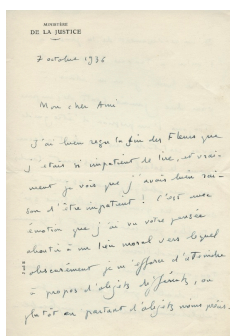 MINISTÈRE
DE LA JUSTICE
7 octobre 1936
Mon cher Ami
J'ai bien reçu la fin des Fleurs que
j'étais si impatient de lire, et vrai-
ment je vois que j'avais bien rai-
son d'être impatient ! C'est avec
émotion que j'ai vu votre pensée
aboutir à un lieu moral vers lequel
obscurément je m'efforce d'atteindre
à propos d'objets différents, ou
plutôt en partant d'objets moins